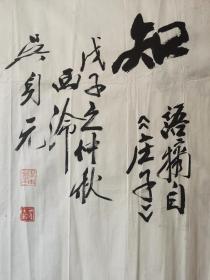 知
語摘自
《庄子》
戊子之仲秋
西泠
吳身元